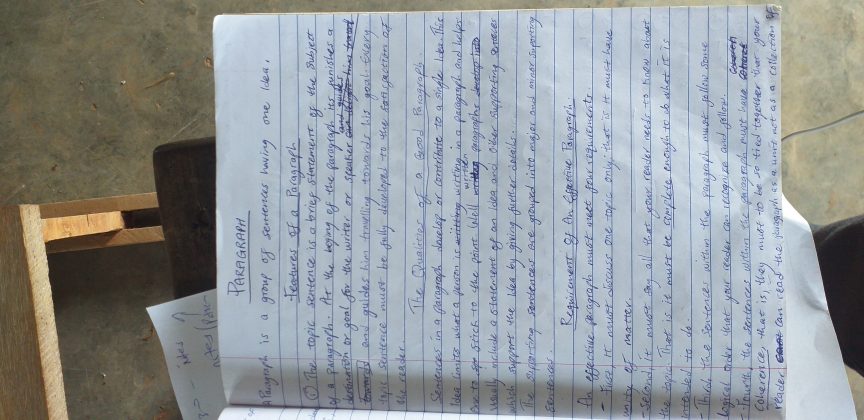 PARAGRAPH
A Paragraph is a group of sentences having one Idea.
Features of a Paragraph
The topic sentence is a brief statement of the subject
of a paragraph. At the beging of the paragraph its funishes a
destination or goal for the writer or speaker
and guides
and guides him travelling towards his goal. Every
topic sentence must be fully developed to the satisfaction of
the reader
The Qualities of a Good Paragraph.
Sentences in a paragraph develop or contribute to a single Idea. This
Idea limits what a person is writing in a paragraph and helps
one to stick to the point. Well written paragraphs
usually include a statement of an idea and other supporting sentences
which support the Idea by giving further details.
The supporting sentences are grouped into major and minor supporting
sentences.
Requirement of An Effective Paragraph
An effective paragraph must meet four requirements
- First It must discuss one topic only, that is it must have
unity of matter.
- Second it must say all that your reader needs to know about
the topic. That is it must be complete enough to do what it is
intended to do.
Third the sentences within the paragraph must follow some
logical order that your reader can recognize and follow.
- Fourth the sentences within the paragraph must have
coherence, that is, they must to be so tied together that your
reader can read the paragraph as a unit not as a collection of